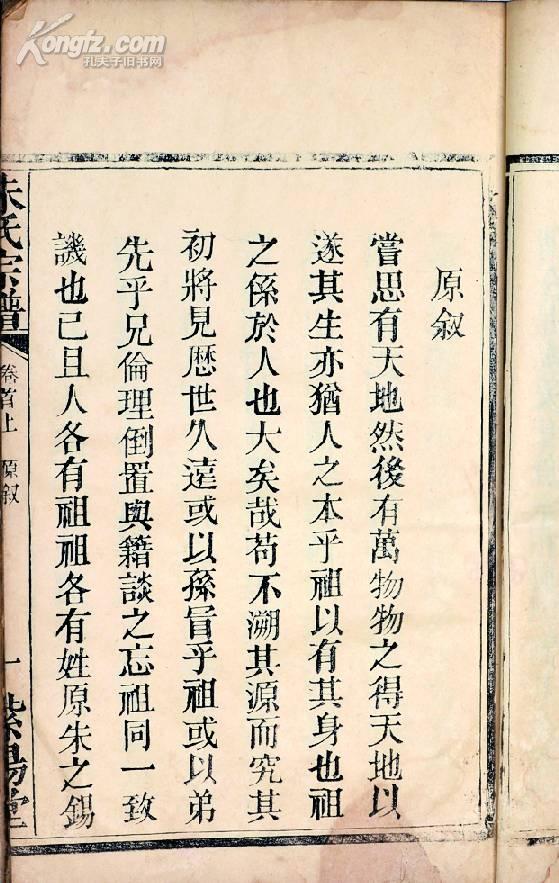 Kongfz.com
孔夫子旧书网
原叙
嘗思有天地然後有萬物物之得天地以
遂其生亦猶人之本乎祖以有其身也祖
之係於人也大矣哉苟不溯其源而究其
初將見歷世久遠或以孫冒乎祖或以弟
先乎兄倫理倒置與籍談之忘祖同一致
譏也已且人各有祖祖各有姓原朱之錫
朱氏宗譜
卷首上 原叙
一 紫陽堂